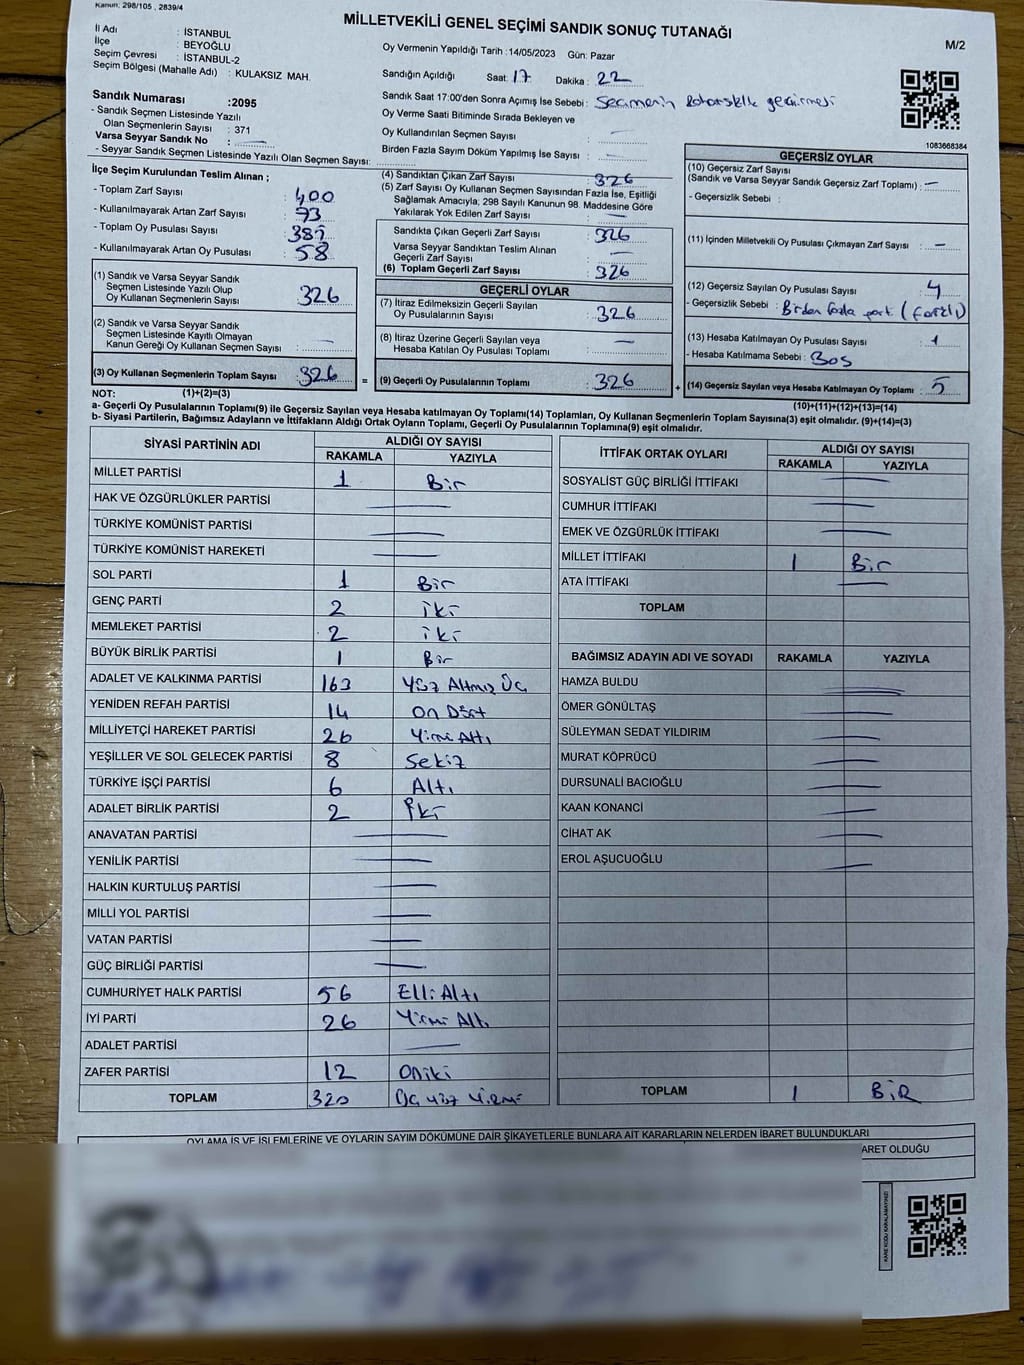 Kanun: 298/105 , 2839/4
MİLLETVEKİLİ GENEL SEÇİMİ SANDIK SONUÇ TUTANAĞI
M/2
İl Adı : İSTANBUL
İlçe : BEYOĞLU
Seçim Çevresi : İSTANBUL-2
Seçim Bölgesi (Mahalle Adı) : KULAKSIZ MAH.
Oy Vermenin Yapıldığı Tarih :14/05/2023 Gün: Pazar
Sandığın Açıldığı Saat: 17 Dakika : 22
Sandık Saat 17:00'den Sonra Açımış İse Sebebi: Seçmenin geçirmesi
Oy Verme Saati Bitiminde Sırada Bekleyen ve
Oy Kullandırılan Seçmen Sayısı : —
Birden Fazla Sayım Döküm Yapılmış İse Sayısı : —
Sandık Numarası :2095
- Sandık Seçmen Listesinde Yazılı
Olan Seçmenlerin Sayısı : 371
Varsa Seyyar Sandık No : —
- Seyyar Sandık Seçmen Listesinde Yazılı Olan Seçmen Sayısı:
İlçe Seçim Kurulundan Teslim Alınan ;
- Toplam Zarf Sayısı : 400
- Kullanılmayarak Artan Zarf Sayısı : 73
- Toplam Oy Pusulası Sayısı :
- Kullanılmayarak Artan Oy Pusulası : 58
(1) Sandık ve Varsa Seyyar Sandık
Seçmen Listesinde Yazılı Olup
Oy Kullanan Seçmenlerin Sayısı : 326
(2) Sandık ve Varsa Seyyar Sandık
Seçmen Listesinde Kayıtlı Olmayan
Kanun Gereği Oy Kullanan Seçmen Sayısı : —
(3) Oy Kullanan Seçmenlerin Toplam Sayısı : 326
(1)+(2)=(3)
(4) Sandıktan Çıkan Zarf Sayısı : 326
(5) Zarf Sayısı Oy Kullanan Seçmen Sayısından Fazla İse, Eşitliği
Sağlamak Amacıyla, 298 Sayılı Kanunun 98. Maddesine Göre
Yakılarak Yok Edilen Zarf Sayısı : —
Sandıkta Çıkan Geçerli Zarf Sayısı : 326
Varsa Seyyar Sandıktan Teslim Alınan
Geçerli Zarf Sayısı : —
(6) Toplam Geçerli Zarf Sayısı : 326
GEÇERLİ OYLAR
(7) İtiraz Edilmeksizin Geçerli Sayılan
Oy Pusulalarının Sayısı : 326
(8) İtiraz Üzerine Geçerli Sayılan veya
Hesaba Katılan Oy Pusulası Toplamı : —
= (9) Geçerli Oy Pusulalarının Toplamı : 326
1083668384
GEÇERSİZ OYLAR
(10) Geçersiz Zarf Sayısı
(Sandık ve Varsa Seyyar Sandık Geçersiz Zarf Toplamı) : —
- Geçersizlik Sebebi :
(11) İçinden Milletvekili Oy Pusulası Çıkmayan Zarf Sayısı : —
(12) Geçersiz Sayılan Oy Pusulası Sayısı : 4
- Geçersizlik Sebebi : Birden fazla part (farklı)
(13) Hesaba Katılmayan Oy Pusulası Sayısı : 1
- Hesaba Katılmama Sebebi : Boş
+ (14) Geçersiz Sayılan veya Hesaba Katılmayan Oy Toplamı : 5
(10)+(11)+(12)+(13)=(14)
NOT:
a- Geçerli Oy Pusulalarının Toplamı(9) ile Geçersiz Sayılan veya Hesaba katılmayan Oy Toplamı(14) Toplamları, Oy Kullanan Seçmenlerin Toplam Sayısına(3) eşit olmalıdır. (9)+(14)=(3)
b- Siyasi Partilerin, Bağımsız Adayların ve İttifakların Aldığı Ortak Oyların Toplamı, Geçerli Oy Pusulalarının Toplamına(9) eşit olmalıdır.
SİYASİ PARTİNİN ADI ALDIĞI OY SAYISI
RAKAMLA YAZIYLA
MİLLET PARTİSİ 1 Bir
HAK VE ÖZGÜRLÜKLER PARTİSİ —
TÜRKİYE KOMÜNİST PARTİSİ —
TÜRKİYE KOMÜNİST HAREKETİ —
SOL PARTİ 1 Bir
GENÇ PARTİ 2 iki
MEMLEKET PARTİSİ 2 iki
BÜYÜK BİRLİK PARTİSİ 1 Bir
ADALET VE KALKINMA PARTİSİ 163 Yüz Altmış Üç
YENİDEN REFAH PARTİSİ 14 On Dört
MİLLİYETÇİ HAREKET PARTİSİ 26 Yirmi Altı
YEŞİLLER VE SOL GELECEK PARTİSİ 8 Sekiz
TÜRKİYE İŞÇİ PARTİSİ 6 Altı
ADALET BİRLİK PARTİSİ 2 İki
ANAVATAN PARTİSİ —
YENİLİK PARTİSİ —
HALKIN KURTULUŞ PARTİSİ —
MİLLİ YOL PARTİSİ —
VATAN PARTİSİ —
GÜÇ BİRLİĞİ PARTİSİ —
CUMHURİYET HALK PARTİSİ 56 Elli Altı
İYİ PARTİ 26 Yirmi Altı
ADALET PARTİSİ —
ZAFER PARTİSİ 12 Oniki
TOPLAM 320 Üç yüz Yirmi
İTTİFAK ORTAK OYLARI ALDIĞI OY SAYISI
RAKAMLA YAZIYLA
SOSYALİST GÜÇ BİRLİĞİ İTTİFAKI —
CUMHUR İTTİFAKI —
EMEK VE ÖZGÜRLÜK İTTİFAKI —
MİLLET İTTİFAKI 1 Bir
ATA İTTİFAKI —
TOPLAM
BAĞIMSIZ ADAYIN ADI VE SOYADI RAKAMLA YAZIYLA
HAMZA BULDU —
ÖMER GÖNÜLTAŞ —
SÜLEYMAN SEDAT YILDIRIM —
MURAT KÖPRÜCÜ —
DURSUNALİ BACIOĞLU —
KAAN KONANCİ —
CİHAT AK —
EROL AŞUCUOĞLU —
TOPLAM 1 BİR
OYLAMA İŞ VE İŞLEMLERİNE VE OYLARIN SAYIM DÖKÜMÜNE DAİR ŞİKAYETLERLE BUNLARA AİT KARARLARIN NELERDEN İBARET BULUNDUKLARI
ARET OLDUĞU
KARE KODU KARALAMAYINIZ!